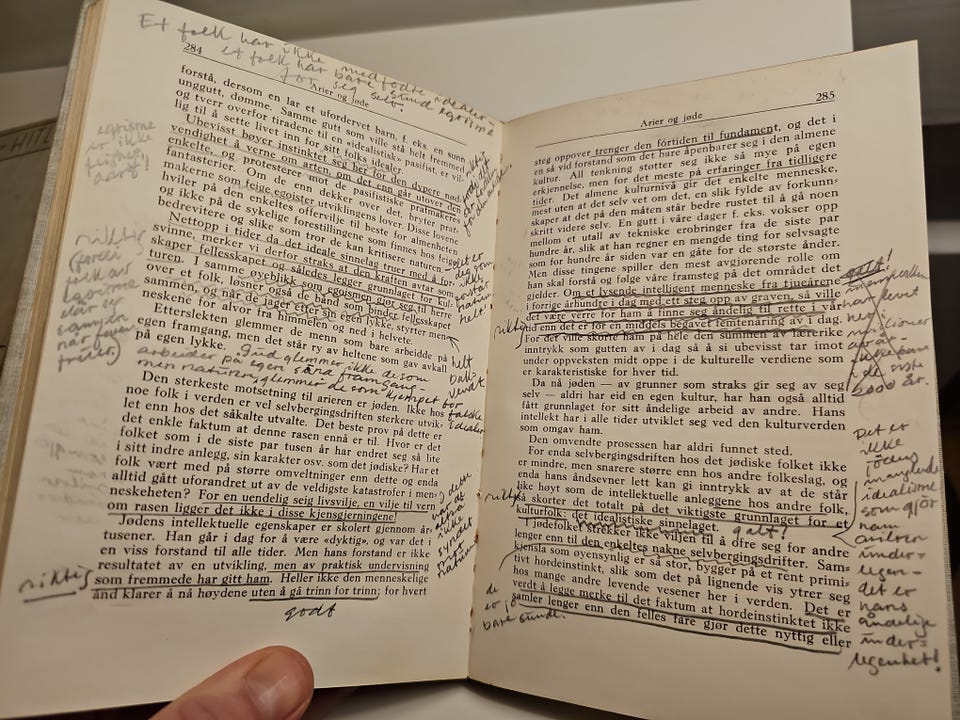 Et folk har ikke medfødte idealer,
et folk har bare stund egoisme
for seg selv.
284
Arier og jøde
forstå, dersom en lar et ufordervet barn, f. eks. en sunn
unggutt, dømme. Samme gutt som ville stå helt fremmed
og tverr overfor tiradene til en «idealistisk» pasifist, er vil-
lig til å sette livet inn for sitt folks idealer.
Ubevisst bøyer instinktet seg her for den dypere nød-
vendighet å verne om arten, om det enn går utover den
enkelte, og protesterer mot de pasifistiske pratmakers
fantasterier. Om de enn dekker over det, bryter prat-
makerne som feige egoister utviklingens lover. Disse lovene
hviler på den enkeltes offerville til beste for almenheten
og ikke på de sykelige forestillingene som finnes hos feige
bedrevitere og slike som tror de kan kritisere naturen.
Nettopp i tider da det ideale sinnelag truer med å for-
svinne, merker vi derfor straks at den kraften avtar som
skaper fellesskapet og således legger grunnlaget for kul-
turen. I samme øyeblikk som egoismen gjør seg til herre
over et folk, løsner også de bånd som binder fellesskapet
sammen, og når de jager etter sin egen lykke, styrter men-
neskene for alvor fra himmelen og ned i helvete.
Etterslekten glemmer de menn som bare arbeidde på
egen framgang, men det står ry av heltene som gav avkall
på egen lykke.
Gud glemmer ikke de som
arbeider på egen sunn framgang -
men naturen glemmer de som kjempet for
falske
idealer
Den sterkeste motsetning til arieren er jøden. Ikke hos
noe folk i verden er vel selvbergingsdriften sterkere utvik-
let enn hos det såkalte utvalgte. Det beste prov på dette er
det enkle faktum at denne rasen ennå er til. Hvor er det
folket som i de siste par tusen år har endret seg så lite
i sitt indre anlegg, sin karakter osv. som det jødiske? Har et
folk vært med på større omveltninger enn dette og enda
alltid gått uforandret ut av de veldigste katastrofer i men-
neskeheten? For en uendelig seig livsvilje, en vilje til vern
om rasen ligger det ikke i disse kjensgjerningene!
Jødens intellektuelle egenskaper er skolert gjennom år-
tusener. Han går i dag for å være «dyktig», og var det i
en viss forstand til alle tider. Men hans forstand er ikke
resultatet av en utvikling, men av praktisk undervisning
som fremmede har gitt ham. Heller ikke den menneskelige
ånd klarer å nå høydene uten å gå trinn for trinn; for hvert
riktig
godt
egoisme
er ikke
riktig
folk
egoismen
samfunn
når
helt
bak-
vendt
Arier og jøde
285
steg oppover trenger den fortiden til fundament, og det i
en så vid forstand som det bare åpenbarer seg i den almene
kultur. All tenkning støtter seg ikke så mye på egen
erkjennelse, men for det meste på erfaringer fra tidligere
tider. Det almene kulturnivå gir det enkelte menneske,
mest uten at det selv vet om det, en slik fylde av forkunn-
skaper at det på den måten står bedre rustet til å gå noen
skritt videre selv. En gutt i våre dager f. eks. vokser opp
mellom et utall av tekniske erobringer fra de siste par
hundre år, slik at han regner en mengde ting for selvsagte
som for hundre år siden var en gåte for de største ånder.
Men disse tingene spiller den mest avgjørende rolle om
han skal forstå og følge våre framsteg på det området det
gjelder. Om et lysende intelligent menneske fra tjueårene
i forrige århundre i dag med ett steg opp av graven, så ville
det være verre for ham å finne seg åndelig til rette i vår
tid enn det er for en middels begavet femtenåring av i dag.
For det ville skorte ham på hele den summen av lærerike
inntrykk som gutten av i dag så å si ubevisst tar imot
under oppveksten midt oppe i de kulturelle verdiene som
er karakteristiske for hver tid.
Da nå jøden — av grunner som straks gir seg av seg
selv — aldri har eid en egen kultur, har han også alltid
fått grunnlaget for sitt åndelige arbeid av andre. Hans
intellekt har i alle tider utviklet seg ved den kulturverden
som omgav ham.
Den omvendte prosessen har aldri funnet sted.
For enda selvbergingsdriften hos det jødiske folket ikke
er mindre, men snarere større enn hos andre folkeslag, og
enda hans åndsevner lett kan gi inntrykk av at de står
like høyt som de intellektuelle anleggene hos andre folk,
så skorter det totalt på det viktigste grunnlaget for et
kulturfolk: det idealistiske sinnelaget.
galt!
I jødefolket strekker ikke viljen til å ofre seg for andre
lenger enn til den enkeltes nakne selvbergingsdrifter. Sam-
kjensla som øyensynlig er så stor, bygger på et rent primi-
tivt hordeinstinkt, slik som det på lignende vis ytrer seg
hos mange andre levende vesener her i verden. Det er
verdt å legge merke til det faktum at hordeinstinktet ikke
samler lenger enn den felles fare gjør dette nyttig eller
riktig
riktig
menneskene
har levet
her i
millioner
av år -
ikke bare
i de siste
2000 år.
Det er
ikke
jødens
manglende
idealisme
som gjør
ham
arieren
under-
legen -
det er
hans
åndelige
under-
legenhet!
de
er jo
bare sunde.